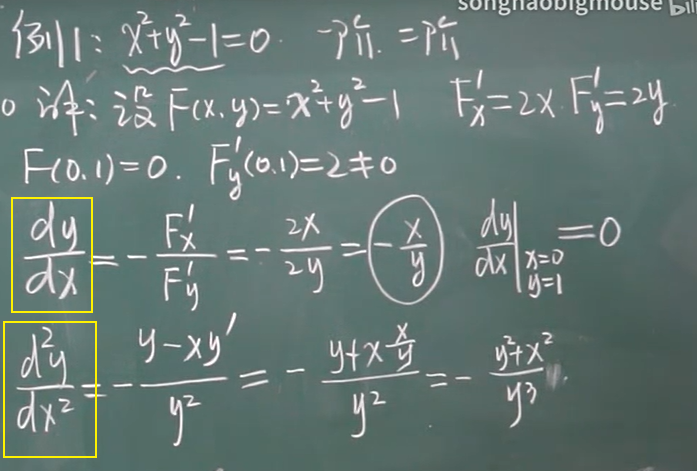 songhaobigmouse bili
例1: x²+y²-1=0. 一阶. 二阶
证: 设F(x,y)=x²+y²-1 F'x=2x. F'y=2y.
F(0,1)=0. F'y(0,1)=2≠0
dy/dx = -F'x/F'y = -2x/2y = -x/y dy/dx|x=0 y=1 =0
d²y/dx² = -(y-xy')/y² = -(y+x x/y)/y² = -(y²+x²)/y³